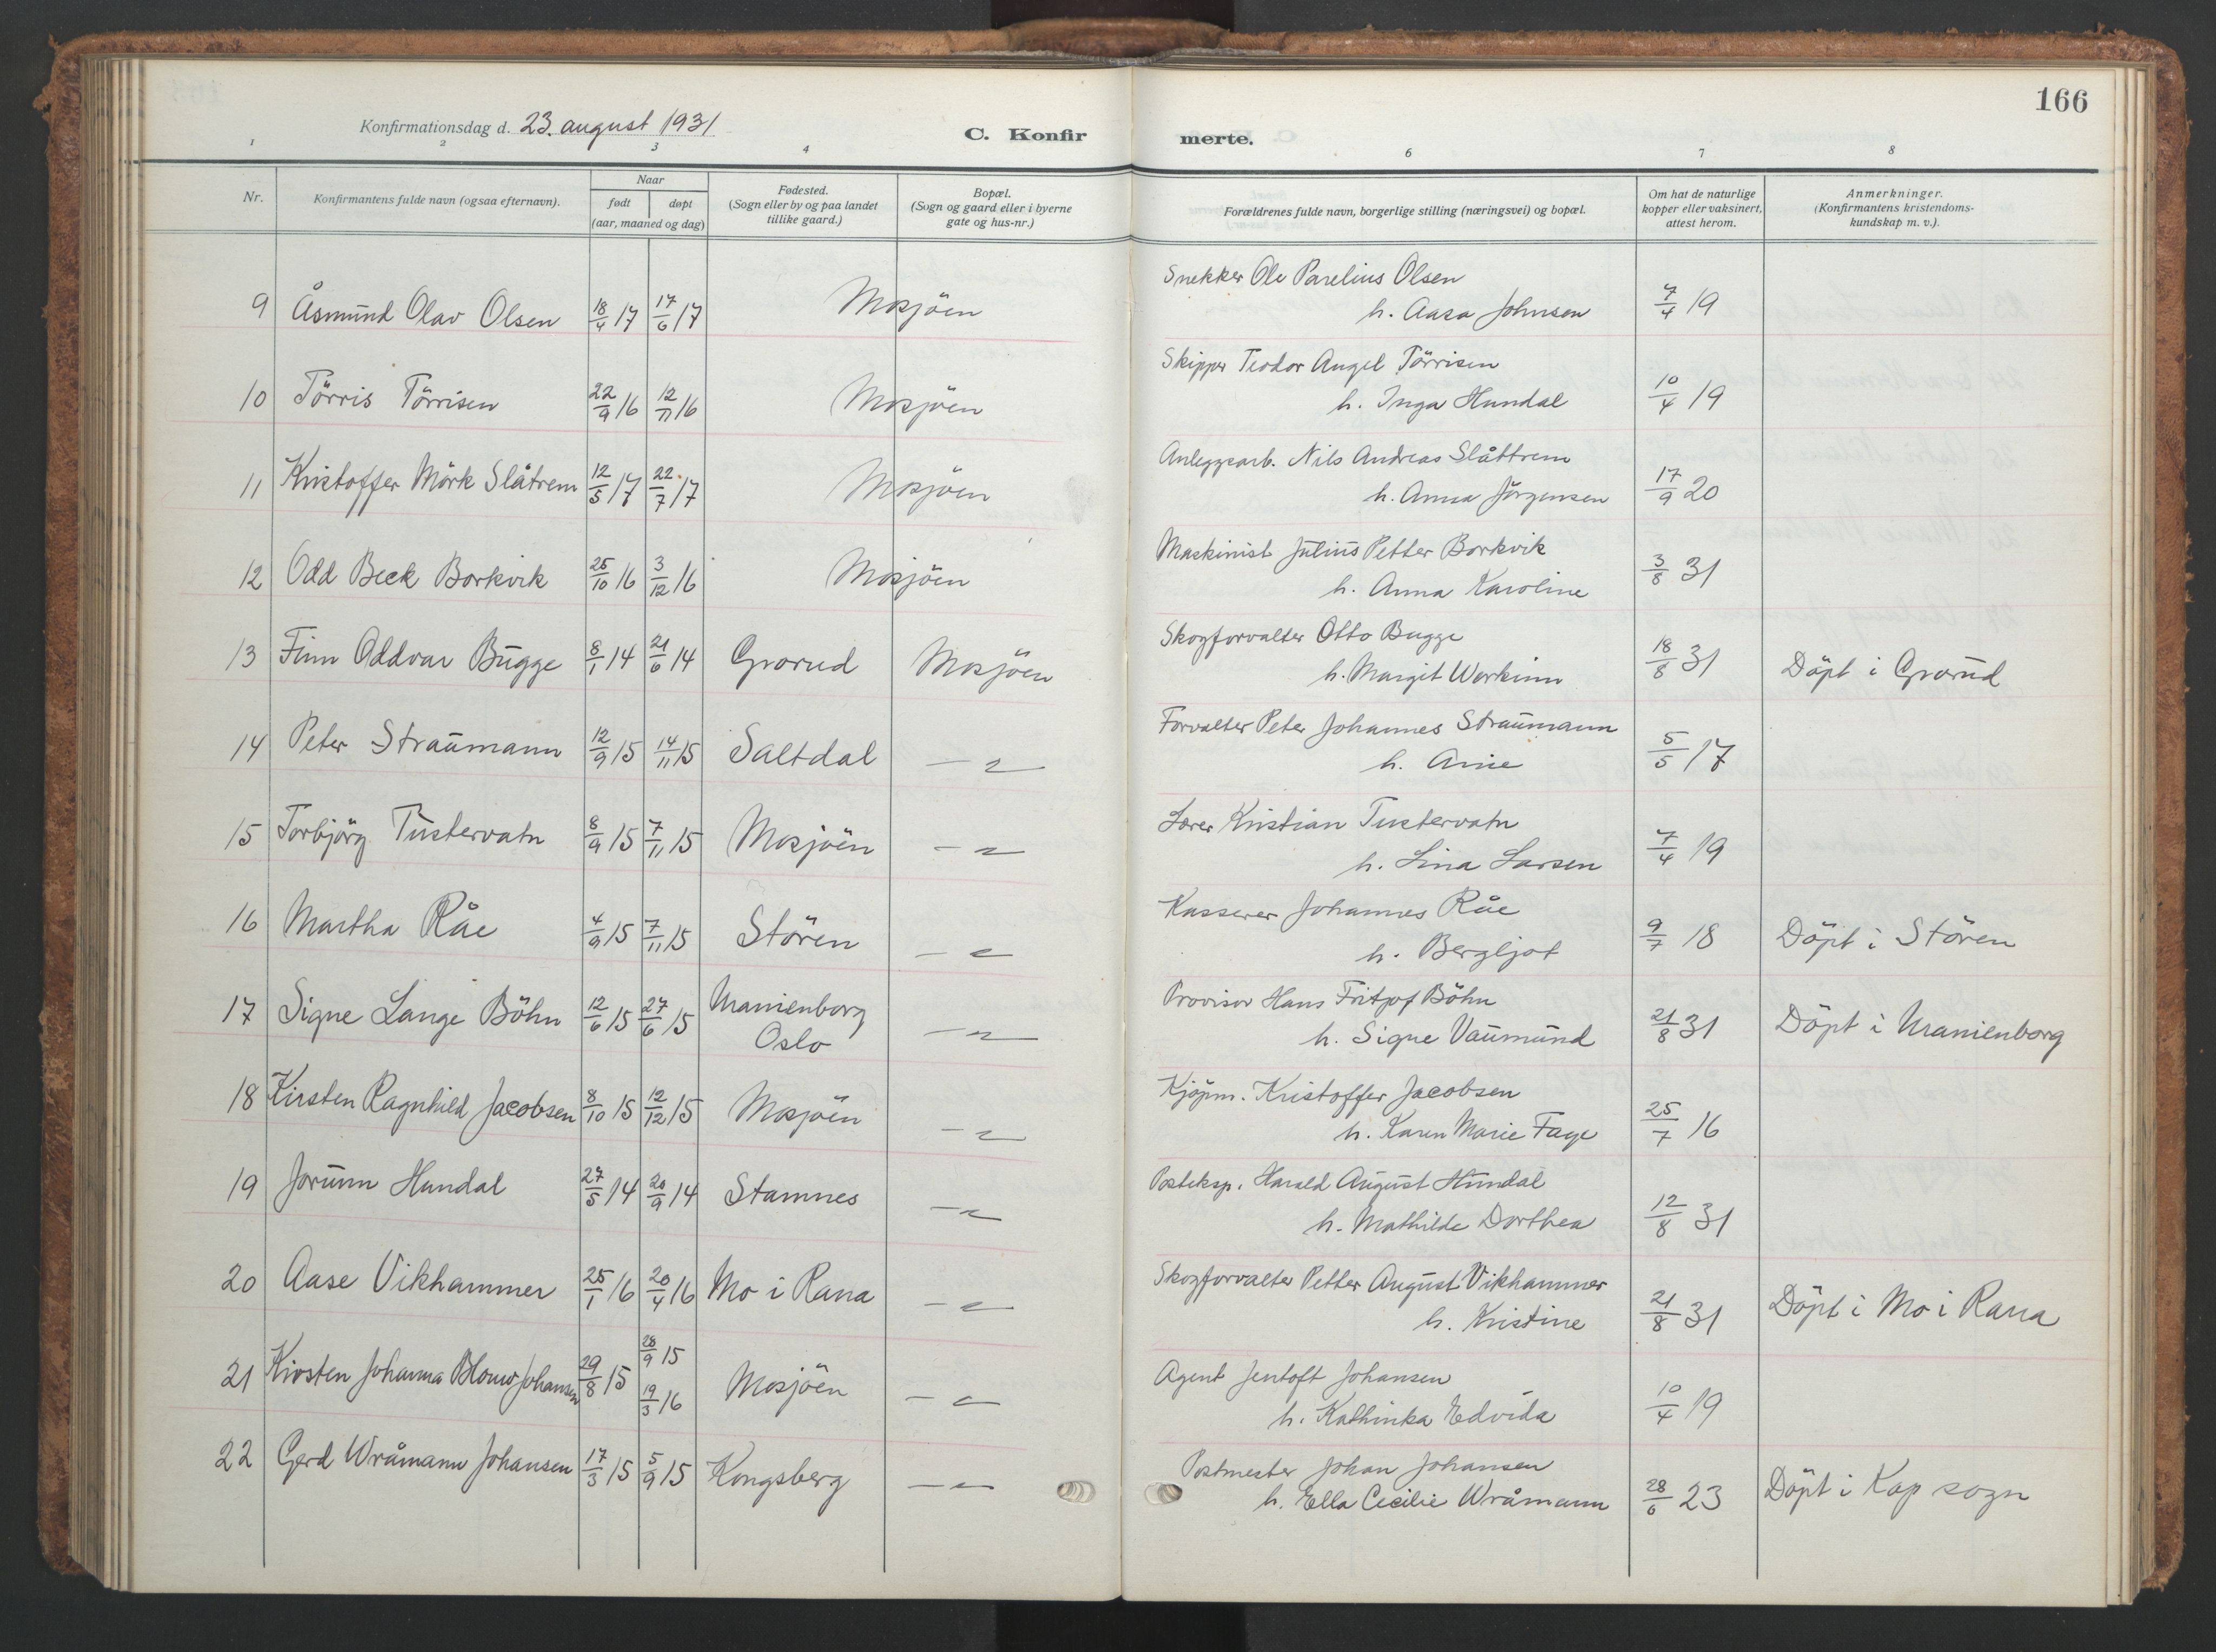 166
Konfirmationsdag d. 23. august 1931
C. Konfir
merte.
1 2 3 4 6 7 8
Nr.
Konfirmantens fulde navn (ogsaa efternavn).
Naar
født
døpt
(aar, maaned og dag)
Fødested.
(Sogn eller by og paa landet
tillike gaard.)
Bopæl.
(Sogn og gaard eller i byerne
gate og hus-nr.)
Forældrenes fulde navn, borgerlige stilling (næringsvei) og bopæl.
Om hat de naturlige
kopper eller vaksinert,
attest herom.
Anmerkninger.
(Konfirmantens kristendoms-
kundskap m. v.).
9 Åsmund Olav Olsen 18/4 17 17/6 17 Mosjöen
Snekker Ole Parelius Olsen
h. Aasa Johnsen 7/4 19
10 Törris Törrisen 22/9 16 12/11 16 Mosjöen
Skipper Teodor Angel Törrisen
h. Inga Hundal 10/4 19
11 Kristoffer Mörk Slåtrem 12/5 17 22/7 17 Mosjöen
Anleggsarb. Nils Andreas Slåttrem
h. Anna Jörgensen 17/9 20
12 Odd Beck Borkvik 25/10 16 3/12 16 Mosjöen
Maskinist Julius Petter Borkvik
h. Anna Karoline 3/8 31
13 Finn Oddvar Bugge 8/1 14 21/6 14 Grorud Mosjöen
Skogforvalter Otto Bugge
h. Margit Werkinn 18/8 31 Döpt i Grorud
14 Peter Straumann 12/9 15 14/11 15 Saltdal — " —
Forvalter Peter Johannes Straumann
h. Arne 5/5 17
15 Torbjörg Tustervatn 8/9 15 7/11 15 Mosjöen — " —
Lærer Kristian Tustervatn
h. Lina Larsen 7/4 19
16 Martha Råe 4/9 15 7/11 15 Stören — " —
Kasserer Johannes Råe
h. Bergljot 9/7 18 Döpt i Stören
17 Signe Lange Böhn 12/6 15 27/6 15 Uranienborg
Oslo — " —
Provisor Hans Fritjof Böhn
h. Signe Vaumund 21/8 31 Döpt i Uranienborg
18 Kirsten Ragnhild Jacobsen 8/10 15 12/12 15 Mosjöen — " —
Kjöpm. Kristoffer Jacobsen
h. Karen Marie Fage 25/7 16
19 Jorunn Hundal 27/5 14 20/9 14 Stamnes — " —
Posteksp. Harald August Hundal
h. Mathilde Dorthea 12/8 31
20 Aase Vikhammer 25/1 16 20/4 16 Mo i Rana — " —
Skogforvalter Petter August Vikhammer
h. Kristine 21/8 31 Döpt i Mo i Rana
21 Kirsten Johanna Johansen 29/8 15 28/9 15
19/3 16 Mosjöen — " —
Agent Jentoft Johansen
h. Kathinka Edvida 10/4 19
22 Gerd Wråmann Johansen 17/3 15 5/9 15 Kongsberg — " —
Postmester Johan Johansen
h. Ella Cecilie Wråmann 28/6 23 Döpt i Kap sogn